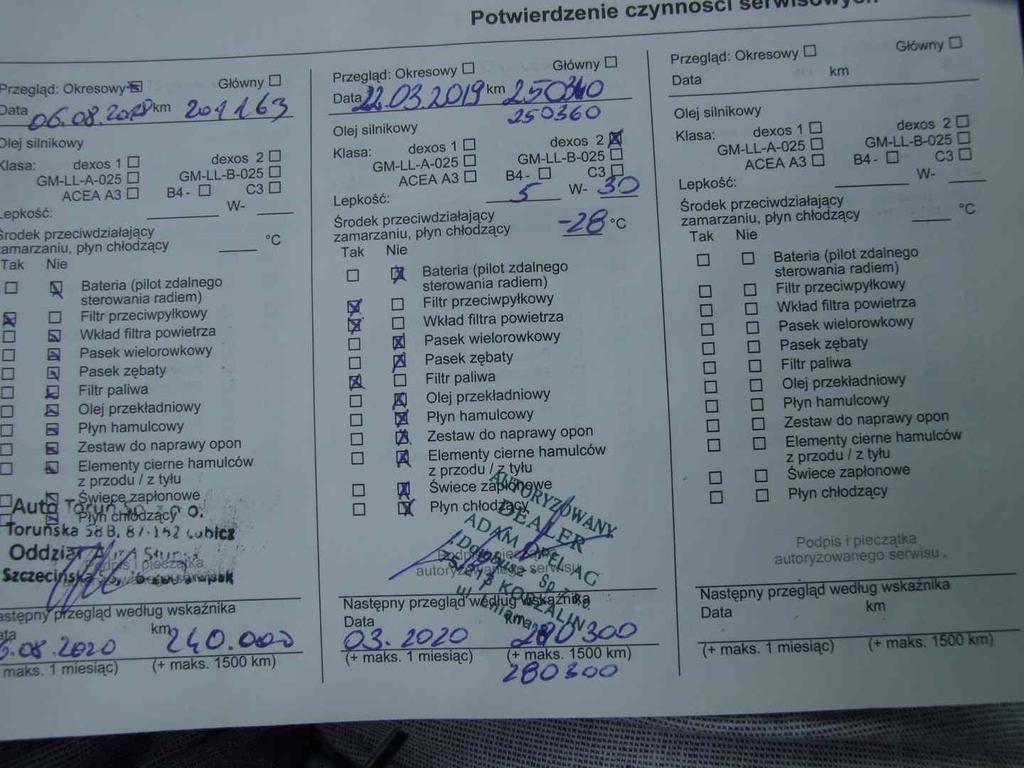 Potwierdzenie czynności serwisowych
Przegląd: Okresowy ☒ Główny ☐
Data 06.08.2018 km 201163
Olej silnikowy
Klasa: dexos 1 ☐ dexos 2 ☐
GM-LL-A-025 ☐ GM-LL-B-025 ☐
ACEA A3 ☐ B4 - ☐ C3 ☐
Lepkość: ____ W- ____
Środek przeciwdziałający
zamarzaniu, płyn chłodzący ____ °C
Tak Nie
☐ ☒ Bateria (pilot zdalnego
sterowania radiem)
☒ ☐ Filtr przeciwpyłkowy
☐ ☒ Wkład filtra powietrza
☐ ☒ Pasek wielorowkowy
☐ ☒ Pasek zębaty
☐ ☒ Filtr paliwa
☐ ☒ Olej przekładniowy
☐ ☒ Płyn hamulcowy
☐ ☒ Zestaw do naprawy opon
☐ ☒ Elementy cierne hamulców
z przodu / z tyłu
☐ ☒ Świece zapłonowe
☐ ☒ Płyn chłodzący
Auto Toruń
Toruńska 58B, 87-152 Łubicz
Oddział
Szczecińska
Podpis i pieczątka
Następny przegląd według wskaźnika
Data km
08.2020 240.000
(+ maks. 1 miesiąc) (+ maks. 1500 km)
Przegląd: Okresowy ☐ Główny ☐
Data 22.03.2019 km 250360
250360
Olej silnikowy
Klasa: dexos 1 ☐ dexos 2 ☒
GM-LL-A-025 ☐ GM-LL-B-025 ☐
ACEA A3 ☐ B4 - ☐ C3 ☐
Lepkość: 5 W- 30
Środek przeciwdziałający
zamarzaniu, płyn chłodzący -28 °C
Tak Nie
☐ ☒ Bateria (pilot zdalnego
sterowania radiem)
☒ ☐ Filtr przeciwpyłkowy
☒ ☐ Wkład filtra powietrza
☐ ☒ Pasek wielorowkowy
☐ ☒ Pasek zębaty
☒ ☐ Filtr paliwa
☐ ☒ Olej przekładniowy
☐ ☒ Płyn hamulcowy
☐ ☒ Zestaw do naprawy opon
☐ ☒ Elementy cierne hamulców
z przodu / z tyłu
☐ ☒ Świece zapłonowe
☐ ☒ Płyn chłodzący
AUTORYZOWANY
DEALER
ADAM OPEL AG
KOSZALIN
autoryzowanego serwisu
Następny przegląd według wskaźnika
Data km
03.2020 280300
(+ maks. 1 miesiąc) (+ maks. 1500 km)
280300
Przegląd: Okresowy ☐ Główny ☐
Data km
Olej silnikowy
Klasa: dexos 1 ☐ dexos 2 ☐
GM-LL-A-025 ☐ GM-LL-B-025 ☐
ACEA A3 ☐ B4 - ☐ C3 ☐
Lepkość: ____ W- ____
Środek przeciwdziałający
zamarzaniu, płyn chłodzący ____ °C
Tak Nie
☐ ☐ Bateria (pilot zdalnego
sterowania radiem)
☐ ☐ Filtr przeciwpyłkowy
☐ ☐ Wkład filtra powietrza
☐ ☐ Pasek wielorowkowy
☐ ☐ Pasek zębaty
☐ ☐ Filtr paliwa
☐ ☐ Olej przekładniowy
☐ ☐ Płyn hamulcowy
☐ ☐ Zestaw do naprawy opon
☐ ☐ Elementy cierne hamulców
z przodu / z tyłu
☐ ☐ Świece zapłonowe
☐ ☐ Płyn chłodzący
Podpis i pieczątka
autoryzowanego serwisu.
Następny przegląd według wskaźnika
Data km
(+ maks. 1 miesiąc) (+ maks. 1500 km)